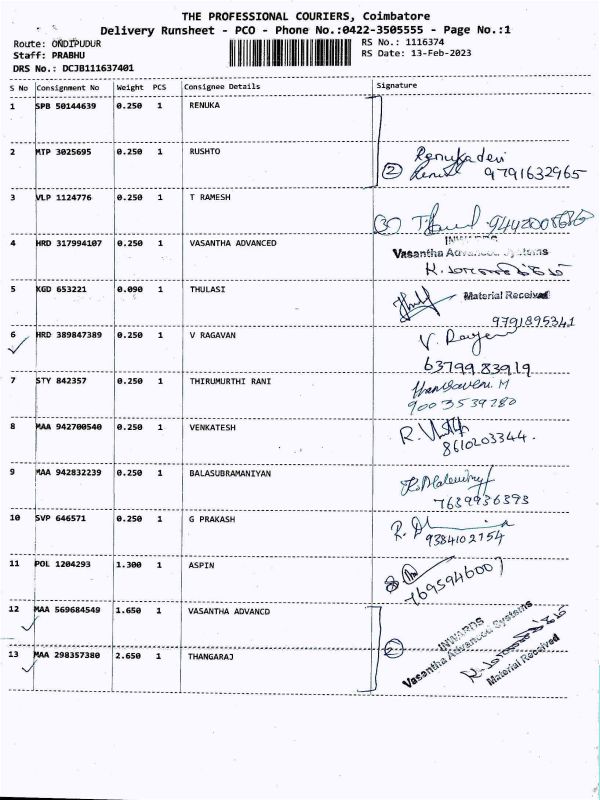 THE PROFESSIONAL COURIERS, Coimbatore
Delivery Runsheet - PCO - Phone No.:0422-3505555 - Page No.:1
Route: ONDIPUDUR
RS No.: 1116374
Staff: PRABHU
RS Date: 13-Feb-2023
DRS No.: DCJB111637401
S No Consignment No Weight PCS Consignee Details Signature
1 SPB 50144639 0.250 1 RENUKA
2 MTP 3025695 0.250 1 RUSHTO
Renukadevi
② 9791632965
3 VLP 1124776 0.250 1 T RAMESH
4 HRD 317994107 0.250 1 VASANTHA ADVANCED
INWARDS
Vasantha Advanced Systems
5 KGD 653221 0.090 1 THULASI
Material Received
9791895341
6 HRD 389847389 0.250 1 V RAGAVAN
63799 83919
7 STY 842357 0.250 1 THIRUMURTHI RANI
9003539280
8 MAA 942700540 0.250 1 VENKATESH
8610203344.
9 MAA 942832239 0.250 1 BALASUBRAMANIYAN
7639936393
10 SVP 646571 0.250 1 G PRAKASH
9384102754
11 POL 1204293 1.300 1 ASPIN
7695946007
12 MAA 569684549 1.650 1 VASANTHA ADVANCD
13 MAA 298357380 2.650 1 THANGARAJ
②
INWARDS
Vasantha Advanced Systems
Material Received